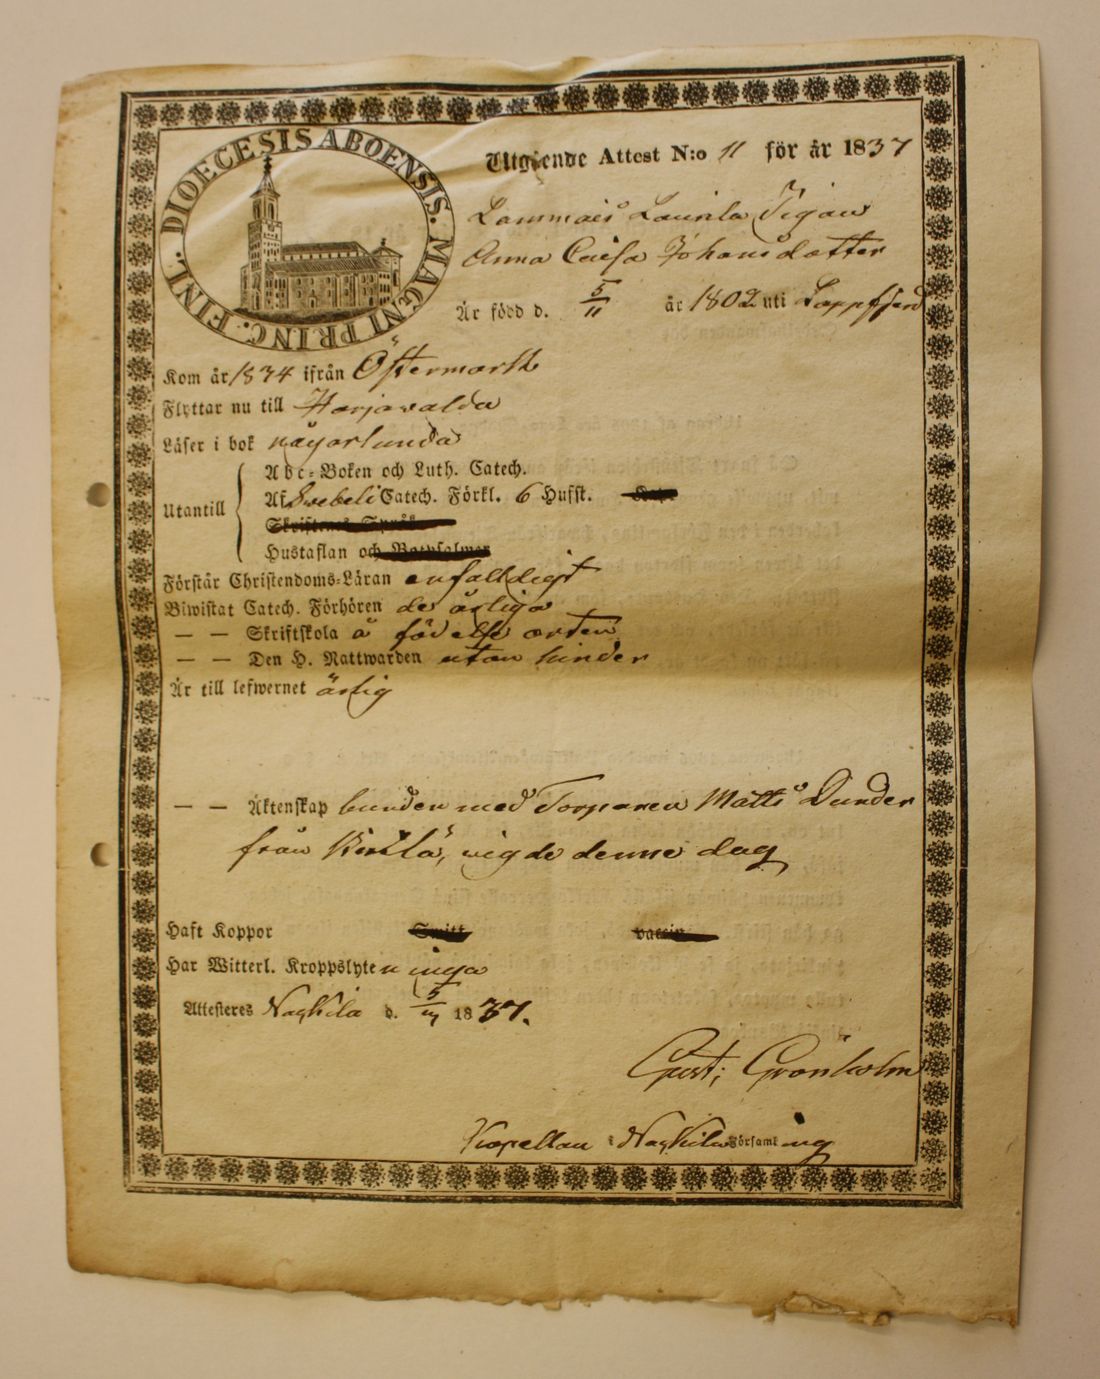 DIOECESIS ABOENSIS. MAGNI PRINC. FINL.
Utgående Attest N:o 11 för år 1837
Lammais Laurila Pigan
Anna Caisa Johansdotter
Är född d. 5/11 år 1802 uti Lappfjerd
Kom år 1834 ifrån Östermark
Flyttar nu till Harjavalda
Läser i bok någorlunda
Utantill
Abc-Boken och Luth. Catech.
Af Svebeli Catech. Förkl. 6 Hufst.
Skriftenes Språk
Hustaflan och Botpsalmer
Förstår Christendoms-Läran enfaldigt
Biwistat Catech. Förhören de årliga
— — Skriftskola å födelse orten
— — Den H. Nattwarden utan hinder
Är till lefwernet ärlig
— — Äktenskap bunden med Torparen Matts Dunder
från, wigde denne dag
Haft Koppor Smitt vaccin
Har Witterl. Kroppslyten inga
Attesteres Nakkila d. 5/ 1837.
Gust: Grönholm
Kapellan i Nakkila Församling